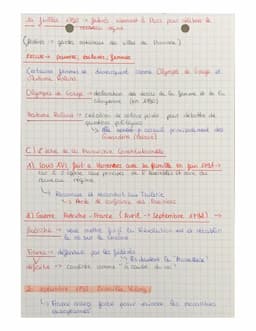 14 juillet 1790 → fédérés viennent à Paris pour célébrer le nouveau régime
(fédérés → gardes nationaux des villes de Province)
Exclus → pauvres, esclaves, femmes
Certaines femmes se distinguent comme Olympe de Gouge et Madame Roland.
Olympe de Gouge → déclaration des droits de la femme et de la citoyenne (en 1791)
Madame Roland → création de salons privés pour débattre de questions politiques
↳ accueil principalement des Girondins
C) L'échec de la Monarchie Constitutionnelle
1) Louis XVI fuit à Varennes avec sa famille en juin 1791 →
car il s'oppose aux principes de l'Assemblée et ceux du nouveau régime
↳ Reconnus et reconduit aux Tuileries
↳ Perte de confiance des Parisiens
2) Guerre Autriche - France (Avril → Septembre 1792) →
Autriche → veut mettre fin à la Révolution et rétablir le roi sur le trône
France → défendue par les fédérés
↳ ils chantent la "Marseillaise"
défaite → considérée comme "à cause du roi"
20 septembre 1792 Bataille Valmy
↳ France assez forte pour vaincre les monarchies européennes